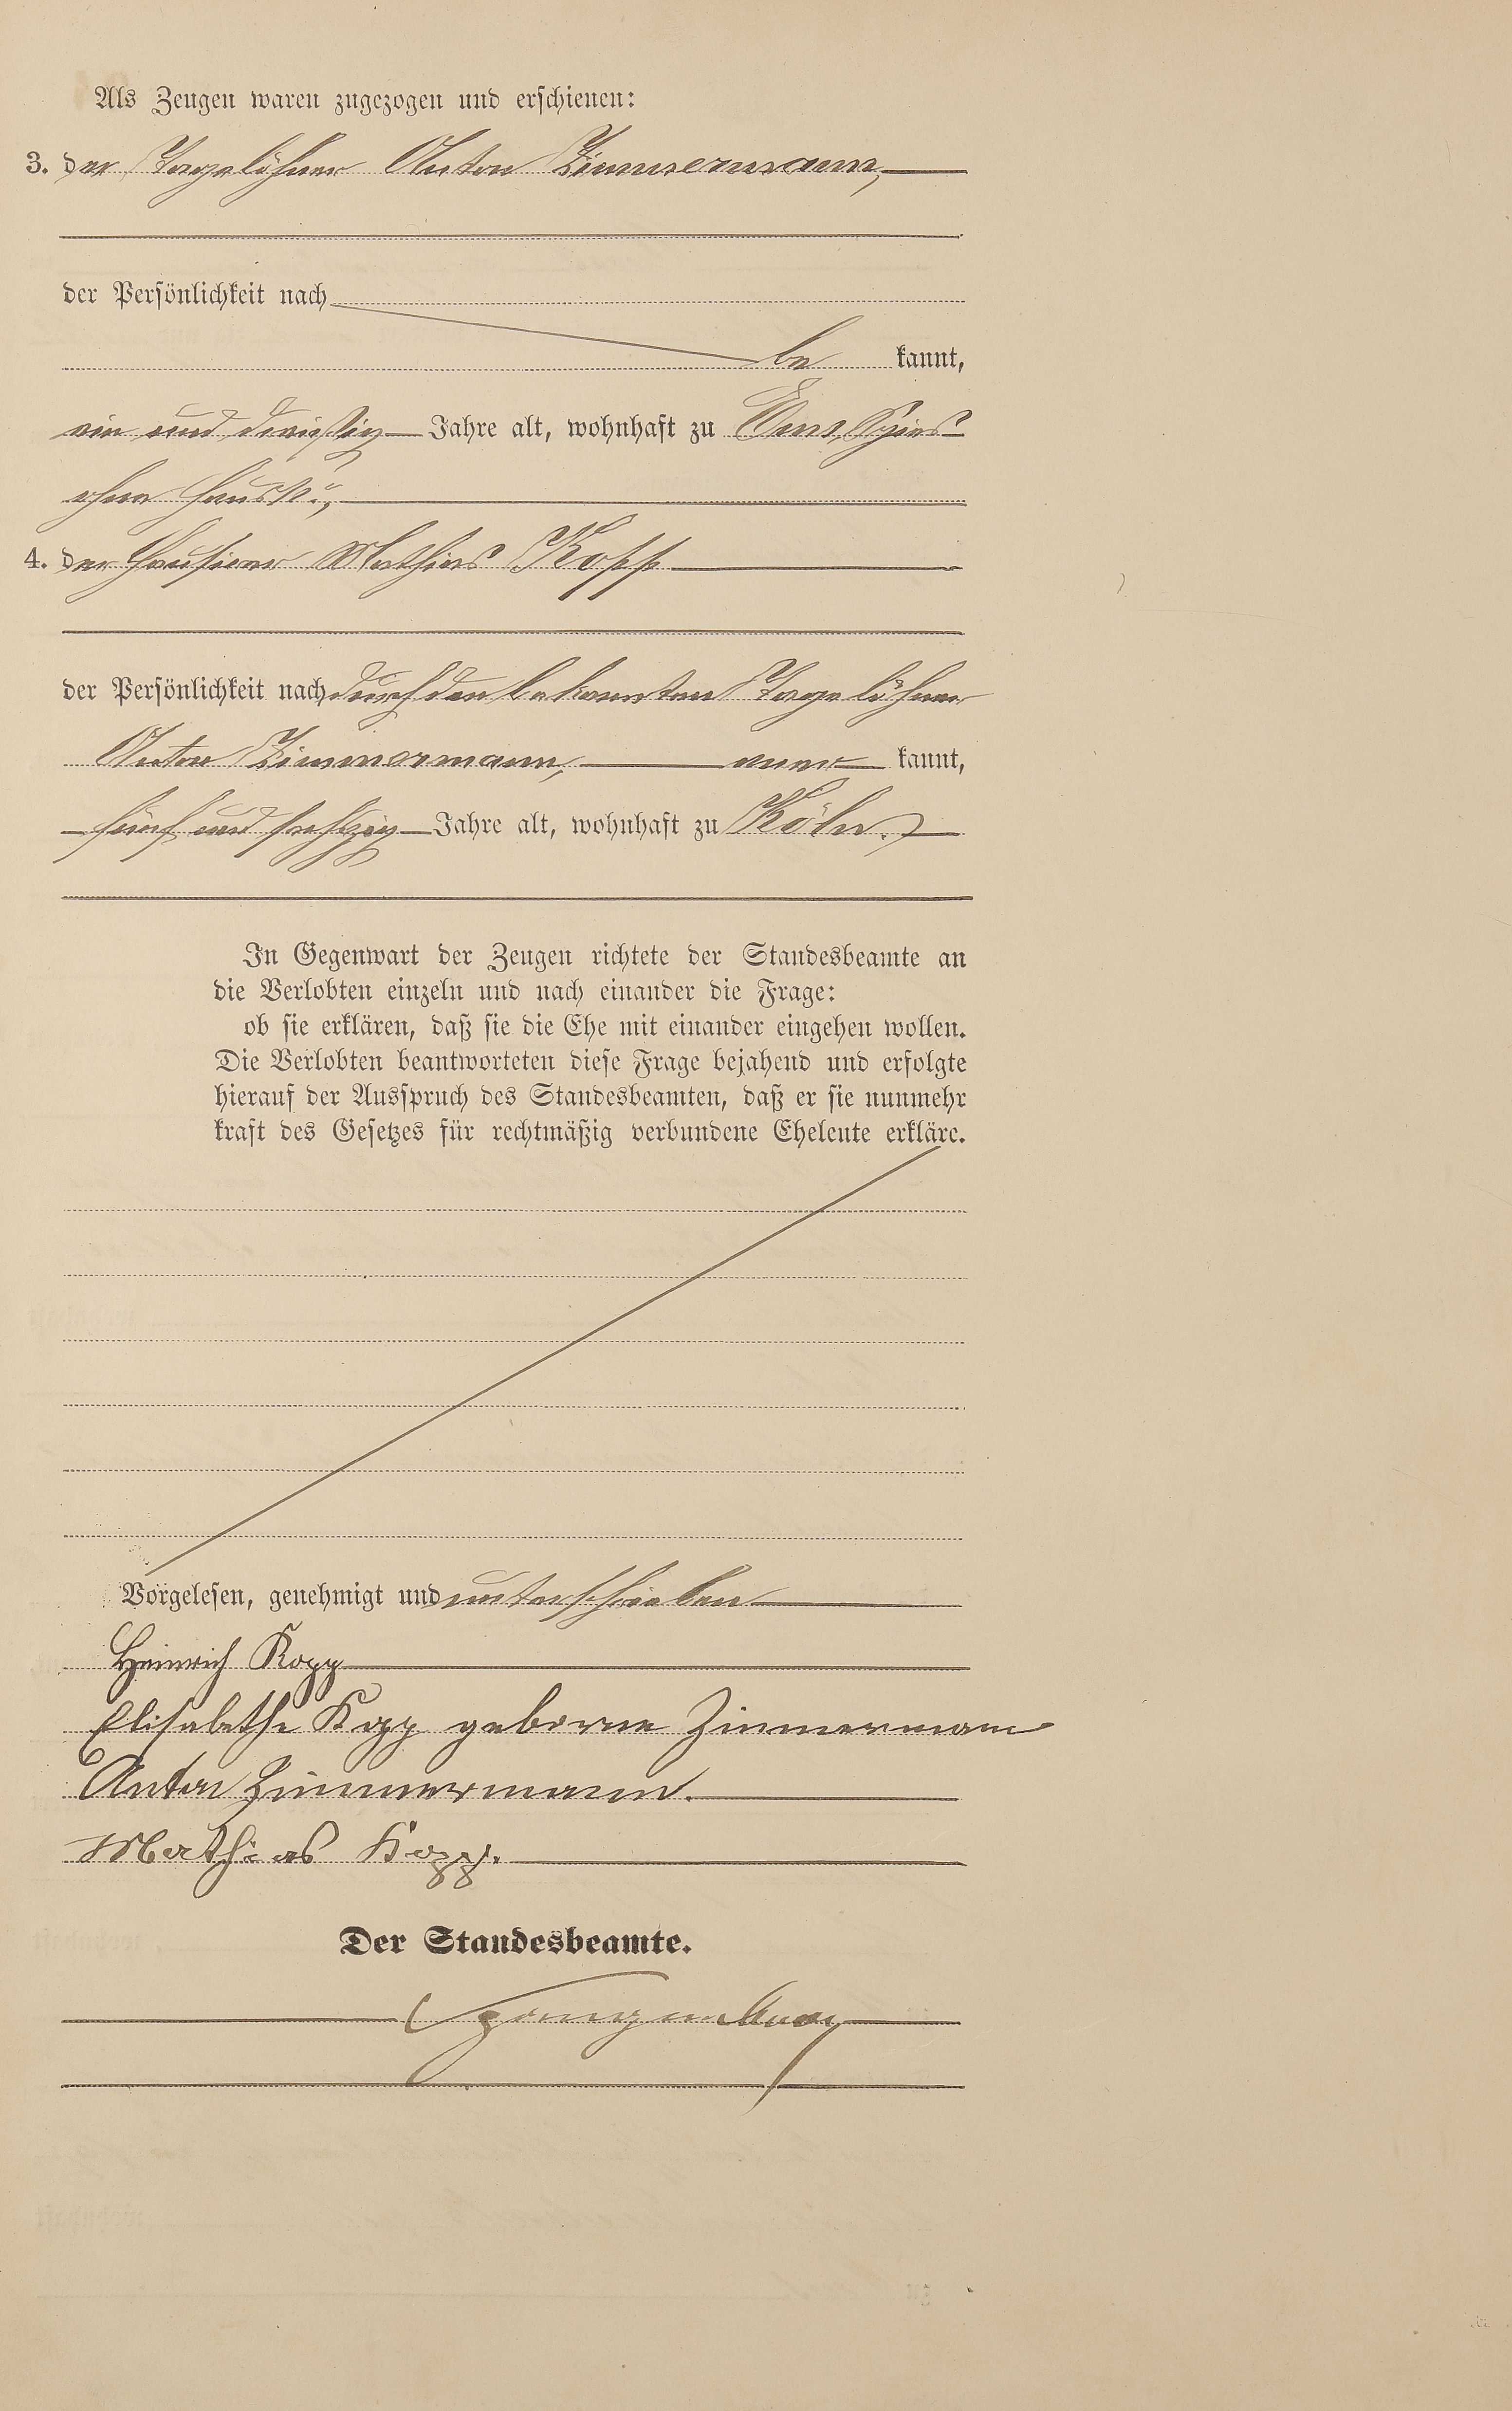 Als Zeugen waren zugezogen und erschienen:
3. der Tagelöhner Anton Zimmermann,
der Persönlichkeit nach
be kannt,
ein und dreißig Jahre alt, wohnhaft zu Ems, Spies
ohne Haus№,
4. der Hausirer Mathias Kopp
der Persönlichkeit nach durch den bekannten Tagelöhner
Anton Zimmermann, aner kannt,
fünf und sechzig Jahre alt, wohnhaft zu Köln.
In Gegenwart der Zeugen richtete der Standesbeamte an
die Verlobten einzeln und nach einander die Frage:
ob sie erklären, daß sie die Ehe mit einander eingehen wollen.
Die Verlobten beantworteten diese Frage bejahend und erfolgte
hierauf der Ausspruch des Standesbeamten, daß er sie nunmehr
kraft des Gesetzes für rechtmäßig verbundene Eheleute erkläre.
Vorgelesen, genehmigt und unterschrieben
Heinrich Kopp
Elisabethe Kopp geborne Zimmermann
Anton Zimmermann.
Mathias Kopp.
Der Standesbeamte.